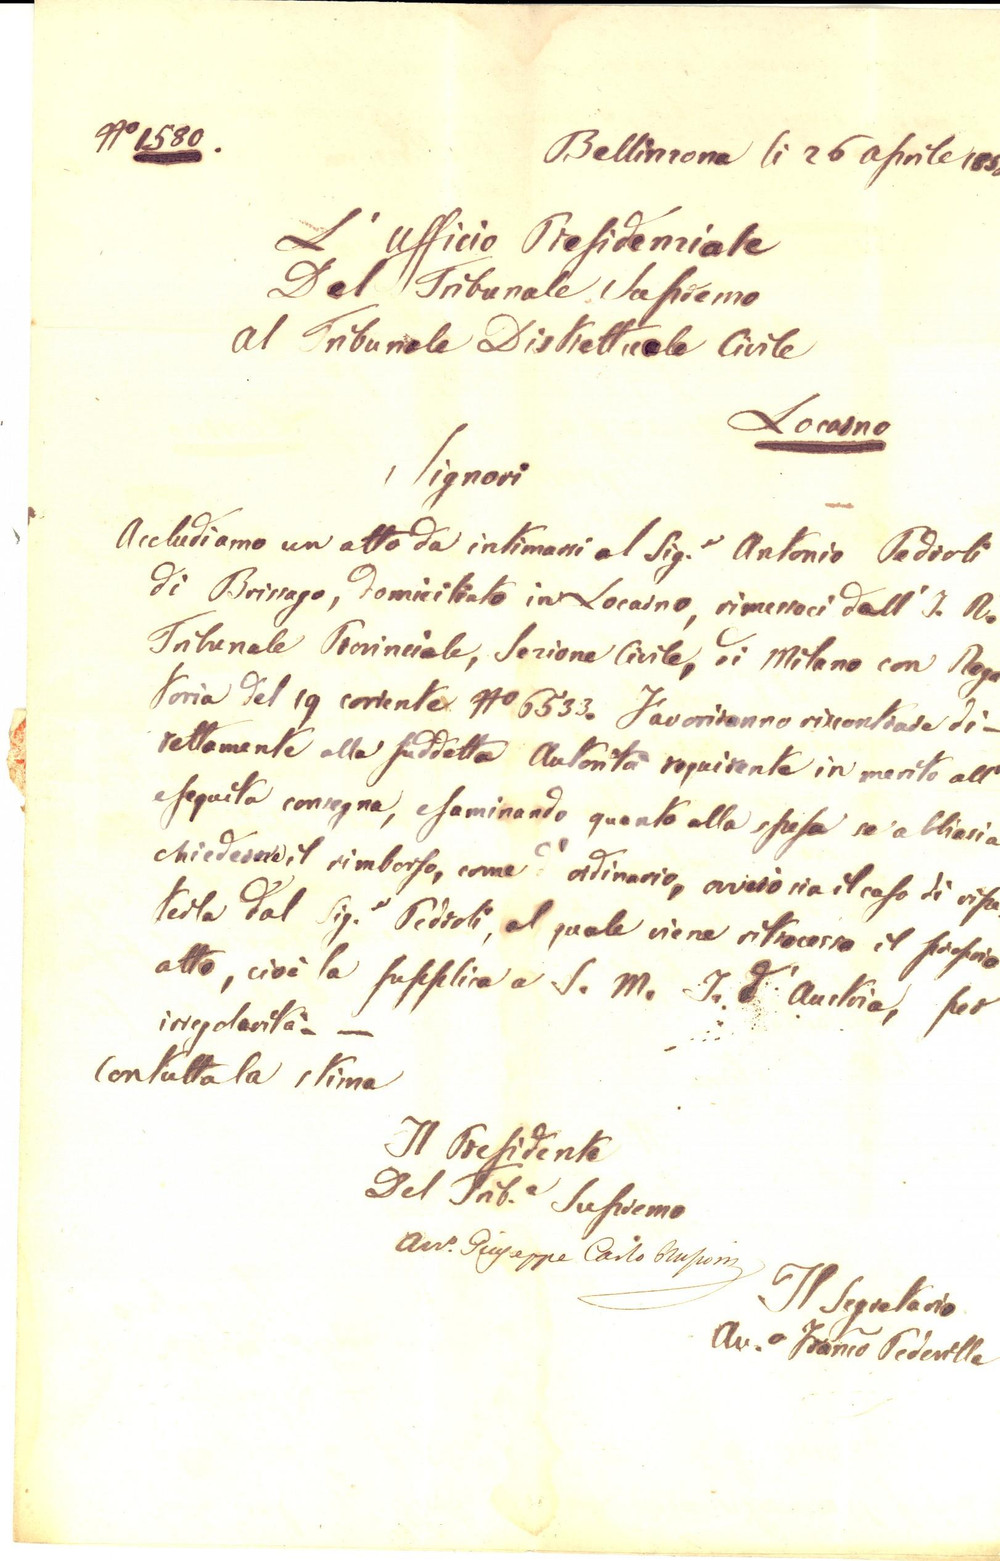 No 1580.
Bellinzona li 26 Aprile 185
L'Ufficio Presidenziale
Del Tribunale Supremo
Al Tribunale Distrettuale Civile
Locarno
Signori
Accludiamo un atto da intimarsi al Sig.r Antonio Pedroli
di Brissago, domiciliato in Locarno, rimessoci dall'I. R.
Tribunale Provinciale, Sezione Civile, di Milano con Roga
toria del 19 corrente No 6533. Favoriranno riscontrare di-
rettamente alla suddetta Autorità requirente in merito all'
eseguita consegna, esaminando quanto alla spesa se abbiasi a
chiederne il rimborso, come è ordinario, ovvero sia il caso di ripe
terla dal Sig.r Pedroli, al quale viene retrocesso il proprio
atto, cioè la supplica a S. M. I. d'Austria, per
irregolarità.
Con tutta la stima
Il Presidente
Del Trib.e Supremo
Avv. Giuseppe Carlo
Il Segretario
Av.o Franco Pedevilla